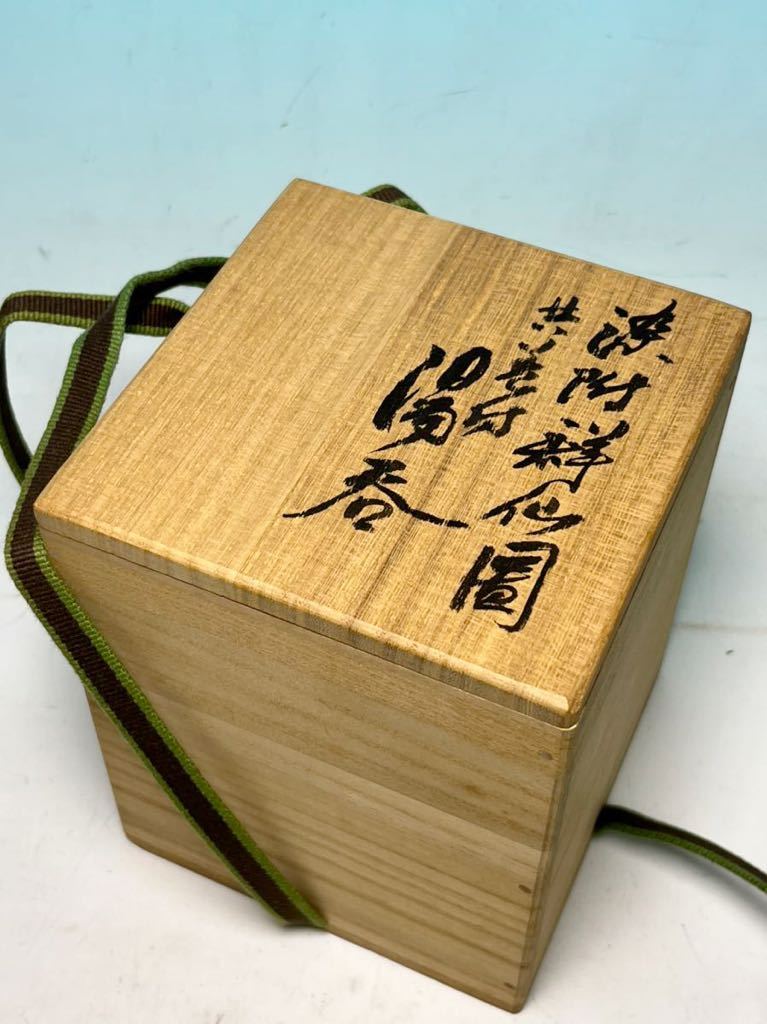 染附群仙圖
共蓋付
湯呑